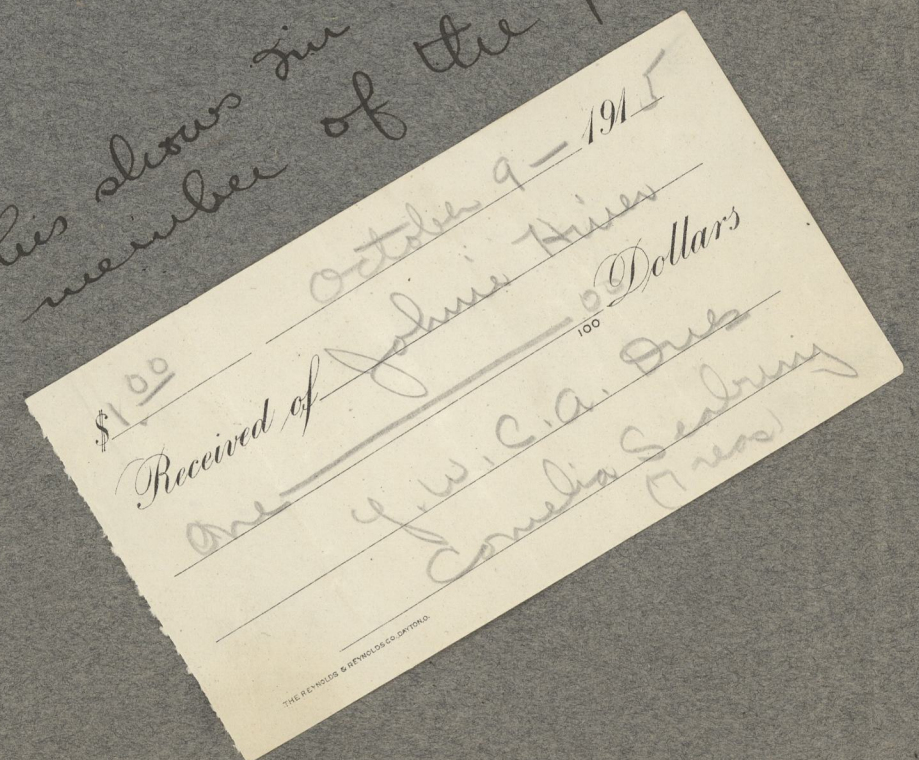 This shows I'm
member of the
October 9 — 1915
$1.00
Received of Johnie Hines
One 00/100 Dollars
Y. W. C. A. Dues
Cornelia Seabring
Treas
THE REYNOLDS & REYNOLDS CO., DAYTON, O.